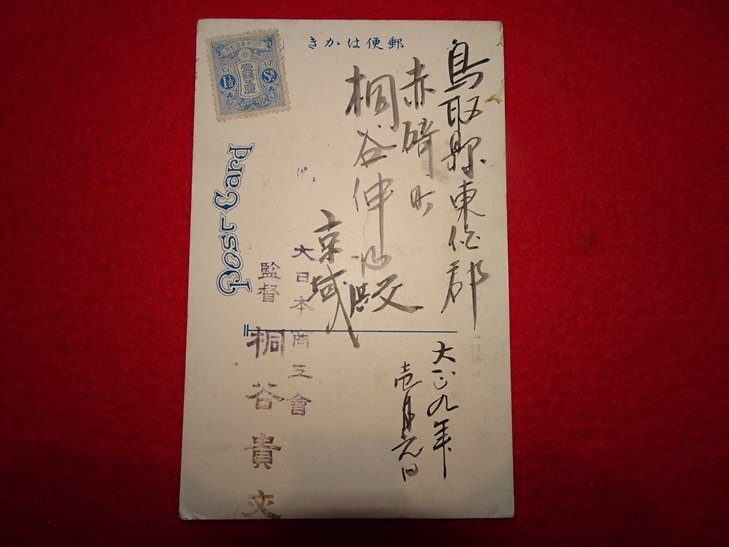 きかは便郵
鳥取縣東伯郡
赤碕町
桐谷伸
殿
京城
大正九年
壱月元日
大日本商工會
監督
桐谷貴文
Post Card
1½
Sn